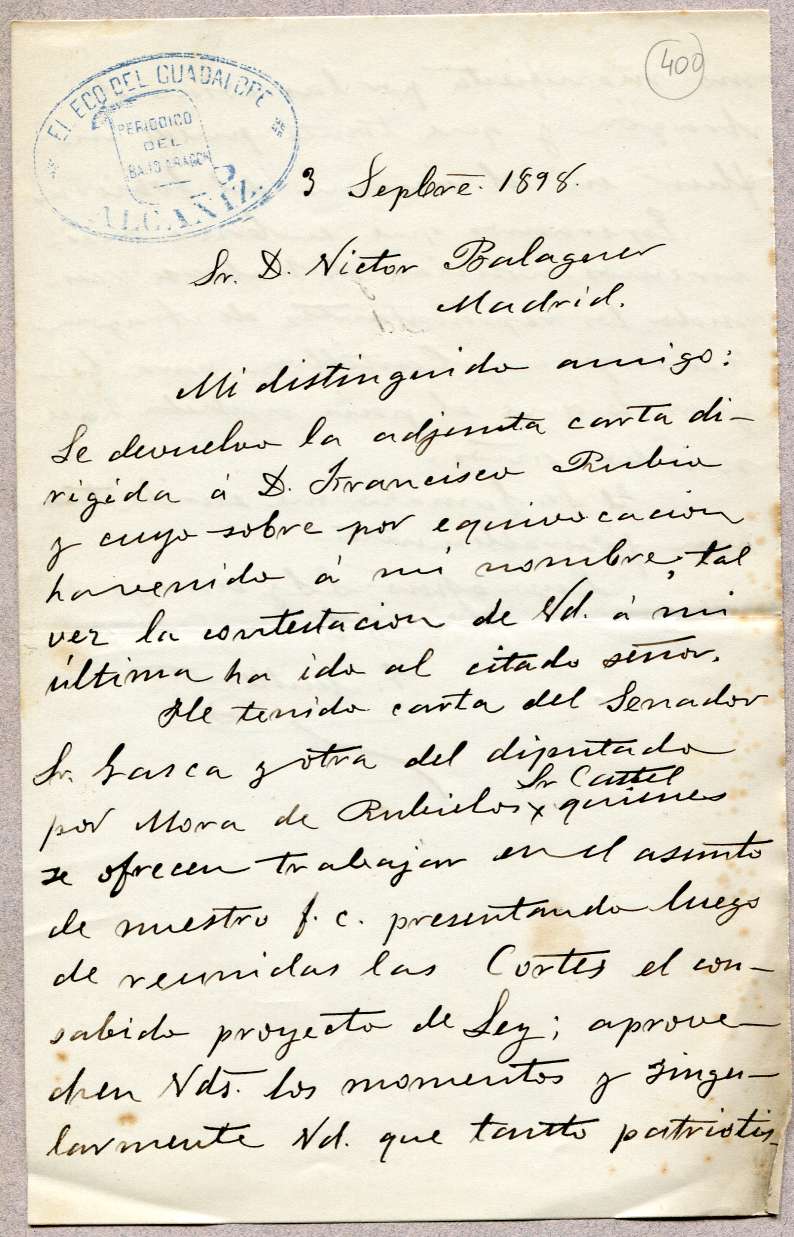 400
EL ECO DEL GUADALOPE
PERIODICO
DEL
BAJO ARAGON
ALCAÑIZ.
3 Sepbrē. 1898.
Sr. D. Victor Balaguer
Madrid.
Mi distinguido amigo:
Le devuelvo la adjunta carta di-
rigida á D. Francisco Rubio
y cuyo sobre por equivocacion
ha venido á mi nombre; tal
vez la contestacion de Vd. á mi
última ha ido al citado señor.
He tenido carta del Senador
Sr. Gasca y otra del diputado
Sr Castel
por Mora de Rubielos x quienes
se ofrecen trabajar en el asunto
de nuestro f. c. presentando luego
de reunidas las Cortes el con-
sabido proyecto de Ley; aprove-
chen Vds. los momentos y singu-
larmente Vd. que tanto patriotis-